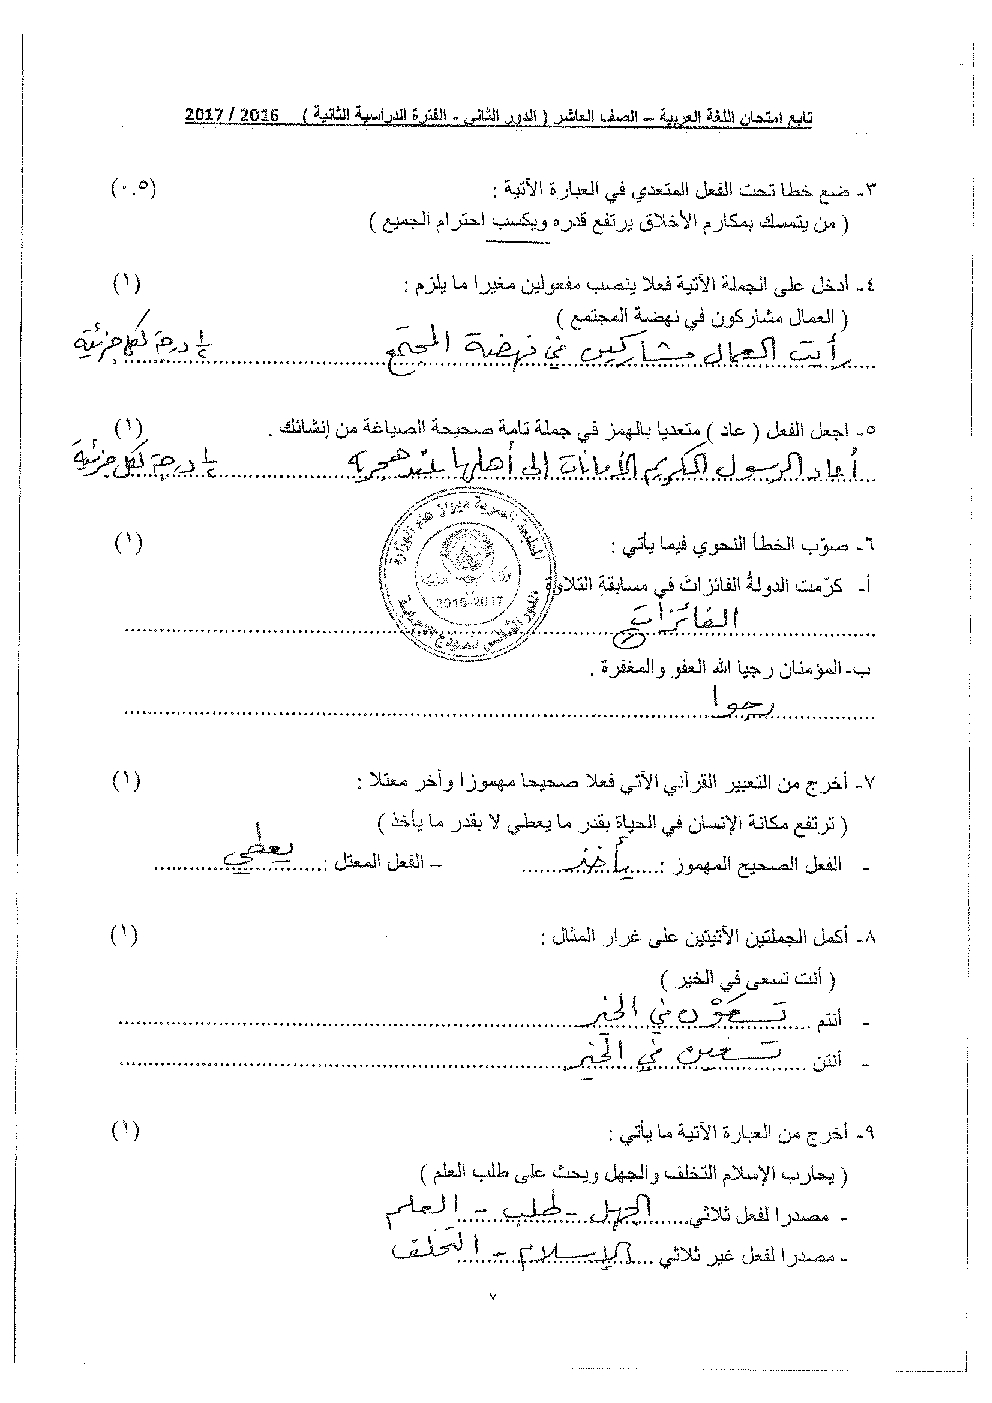 تابع امتحان اللغة العربية – الصف العاشر ( الدور الثاني - الفترة الدراسية الثانية ) 2016 / 2017
٣- ضع خطا تحت الفعل المتعدي في العبارة الآتية : (٠.٥)
( من يتمسك بمكارم الأخلاق يرتفع قدره ويكسب احترام الجميع )
٤- أدخل على الجملة الآتية فعلا ينصب مفعولين مغيرا ما يلزم : (١)
( العمال مشاركون في نهضة المجتمع )
رأيت العمال مشاركين في نهضة المجتمع ½ درجة لكل جزئية
٥- اجعل الفعل ( عاد ) متعديا بالهمز في جملة تامة صحيحة الصياغة من إنشائك . (١)
أعاد الرسول الكريم الأمانات إلى أهلها عند هجرته ½ درجة لكل جزئية
٦- صوّب الخطأ النحوي فيما يأتي : (١)
أ- كرّمت الدولةُ الفائزاتَ في مسابقة التلاوة
الفائزاتِ
ب- المؤمنان رجيا الله العفو والمغفرة .
رجوا
2016-2017
٧- أخرج من التعبير القرآني الآتي فعلا صحيحا مهموزا وآخر معتلا : (١)
( ترتفع مكانة الإنسان في الحياة بقدر ما يعطي لا بقدر ما يأخذ )
- الفعل الصحيح المهموز : يأخذ – الفعل المعتل : يعطي
٨- أكمل الجملتين الآتيتين على غرار المثال : (١)
( أنت تسعى في الخير )
- أنتم تسعَوْن في الخير
- أنتن تسعين في الخير
٩- أخرج من العبارة الآتية ما يأتي : (١)
( يحارب الإسلام التخلف والجهل ويحث على طلب العلم )
- مصدرا لفعل ثلاثي الجهل - طلب - العلم
- مصدرا لفعل غير ثلاثي الإسلام - التخلف
٧